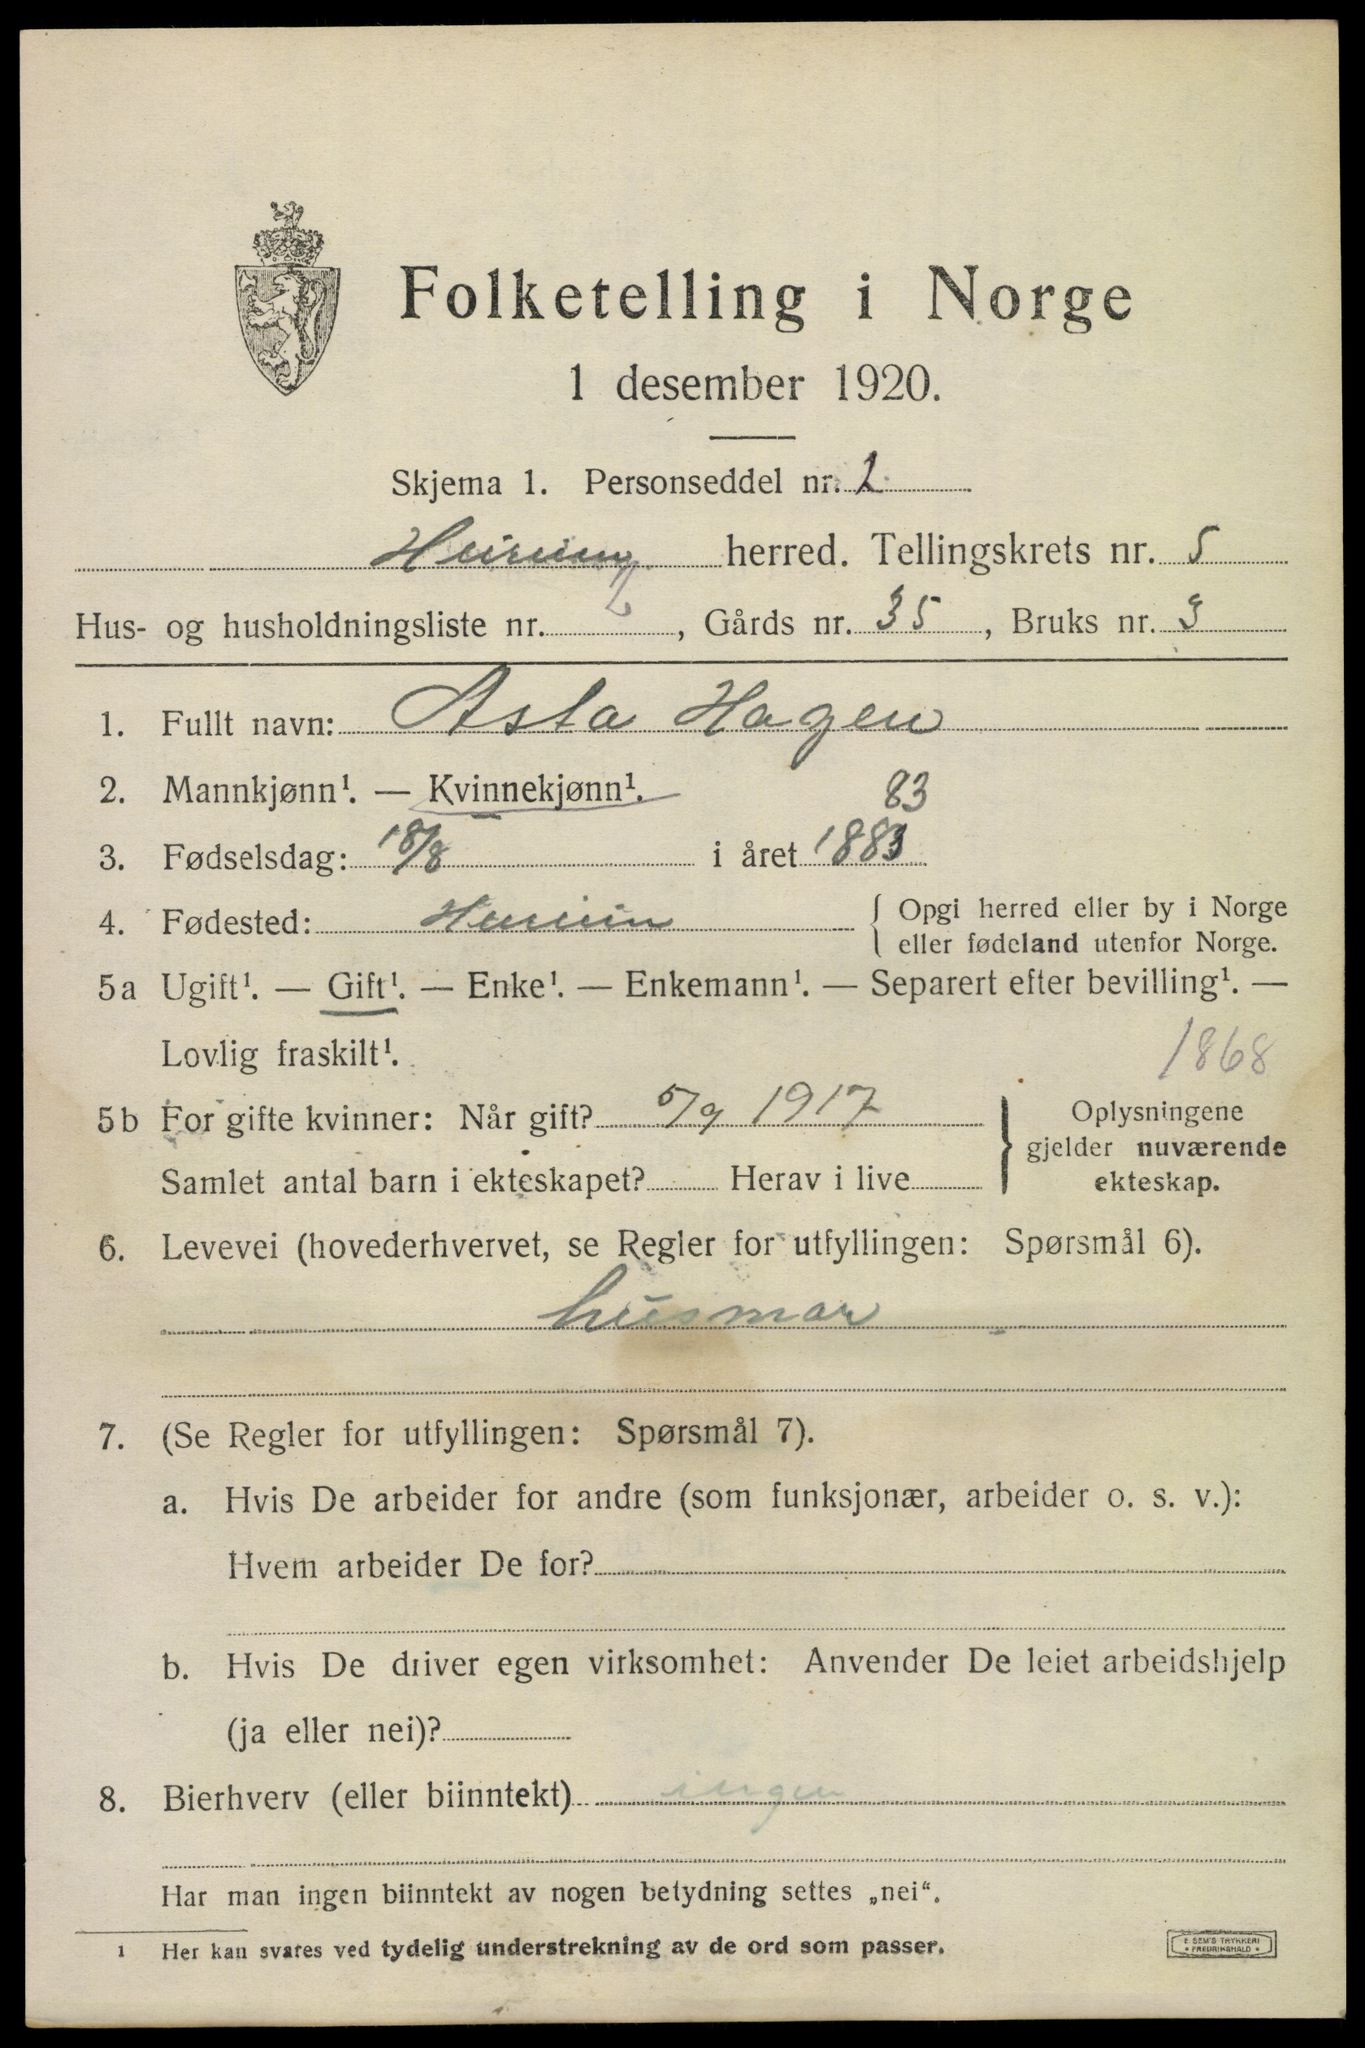 Folketelling i Norge
1 desember 1920.
Skjema 1. Personseddel nr. 2
herred. Tellingskrets nr. 5
Hus- og husholdningsliste nr. 2, Gårds nr. 35, Bruks nr. 3
1. Fullt navn: Asta Hagen
2. Mannkjønn¹. — Kvinnekjønn¹.
83
3. Fødselsdag: 18/8 i året 1883
4. Fødested: { Opgi herred eller by i Norge
eller fødeland utenfor Norge.
5a Ugift¹. — Gift¹. — Enke¹. — Enkemann¹. — Separert efter bevilling¹. —
Lovlig fraskilt¹.
1868
5b For gifte kvinner: Når gift? 5/9 1917
Samlet antal barn i ekteskapet? Herav i live
} Oplysningene
gjelder nuværende
ekteskap.
6. Levevei (hovederhvervet, se Regler for utfyllingen: Spørsmål 6).
husmor
7. (Se Regler for utfyllingen: Spørsmål 7).
a. Hvis De arbeider for andre (som funksjonær, arbeider o. s. v.):
Hvem arbeider De for?
b. Hvis De driver egen virksomhet: Anvender De leiet arbeidshjelp
(ja eller nei)?
8. Bierhverv (eller biinntekt) ingen
Har man ingen biinntekt av nogen betydning settes „nei“.
1 Her kan svares ved tydelig understrekning av de ord som passer.
E. SEM'S TRYKKERI
* FREDRIKSHALD *